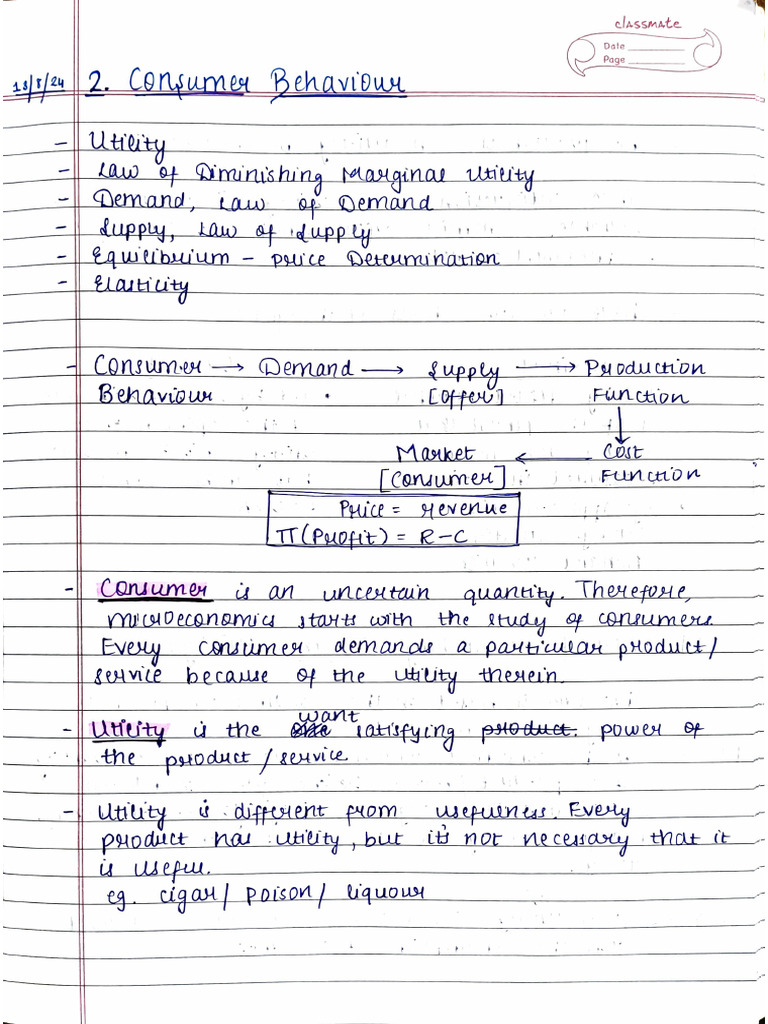 classmate
Date
Page
13/8/24 2. Consumer Behaviour
- Utility
- Law of Diminishing Marginal Utility
- Demand, Law of Demand
- Supply, Law of Supply
- Equilibrium - Price Determination
- Elasticity
- Consumer → Demand → Supply → Production
Behaviour [Offer] Function
↓
Market ← Cost
[Consumer] Function
Price = revenue
π (Profit) = R-C
- Consumer is an uncertain quantity. Therefore,
microeconomics starts with the study of consumers.
Every consumer demands a particular product/
service because of the utility therein.
- Utility is the want satisfying product. power of
the product/service
- Utility is different from usefulness. Every
product has utility, but it's not necessary that it
is useful.
eg. cigar/ poison/ liquour